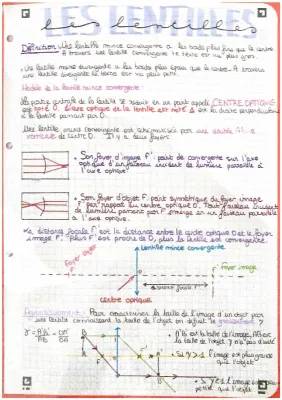 LES LENTILLES
Les lentilles
Définition: Une lentille mince convergente a les bords plus fins que le centre
A travers une lentille convergente le texte est vu plus gros.
Une lentille mince divergente a les bords plus épais que le centre. A travers
une lentille divergente le texte est vu plus petit.
Modèle de la lentille mince convergente:
La partie centrale de la lentille se réduit en un point appelé CENTRE OPTIQUE
est noté O. L'axe optique de la lentille est noté Δ est la droite perpendiculaire
à la lentille passant par O.
Une lentille mince convergente est schématisée par une double
verticale de centre O. Il y a deux foyers:
Son foyer d'image F' point de convergente sur l'axe
optique d'un faisceau incident de lumière parallèle à
l'axe optique
Son foyer d'objet F point symétrique du foyer image
F' par rapport au centre optique O. Tout faisceau incident
de lumière passant par F émerge en un faisceau parallèle
à l'axe optique
La distance focale f' est la distance entre le centre optique O et le foyer
image F'. Plus F' est proche de O, plus la lentille est convergente.
lentille mince convergente
Foyer objet
F
O
F' foyer image
distance focale f'
centre optique
Agrandissement: Pour caractériser la taille de l'image d'un objet par
une lentille connaissant la taille de l'objet on définit le grandissement γ
γ = A'B' = OA'
AB OA
A'B' est la taille de l'image, AB est
la taille de l'objet γ n'a pas d'unité
Si γ > 1 l'image est plus grande
que l'objet
Si γ < 1 l'image est plus
petite que l'objet